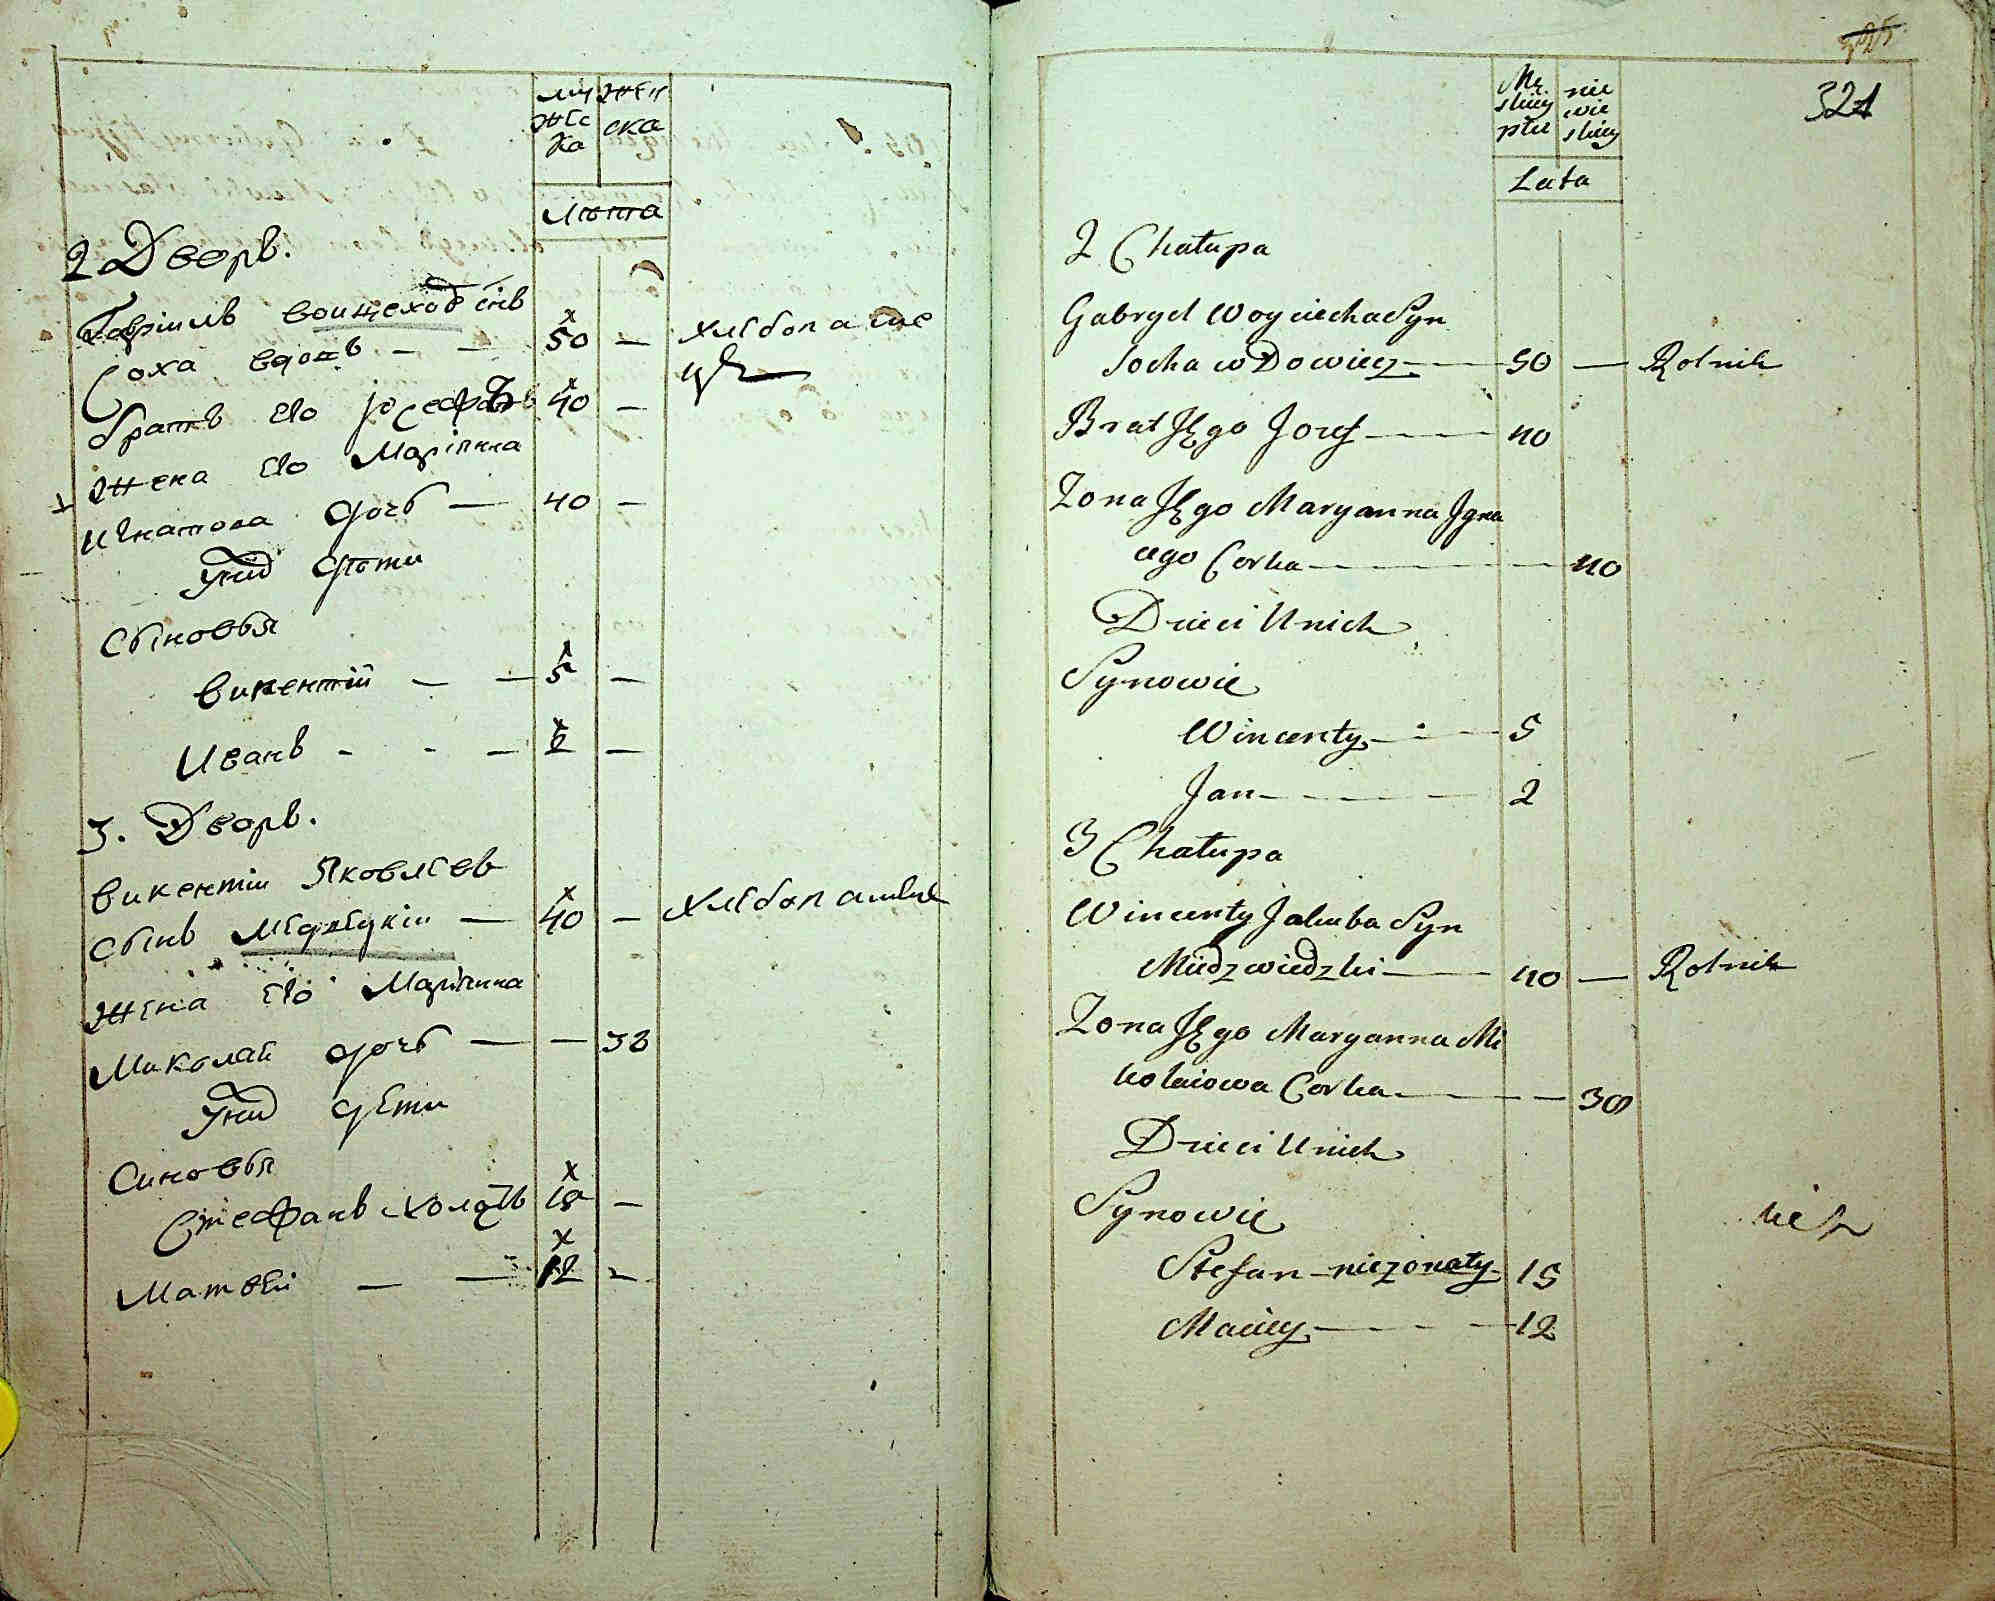 му
жес
ка
жен
ска
Лѣта
2 Дворъ.
Гавріилъ воицеховъ снъ
Соха вдовъ — — 50 — хлебопаше
цъ
братъ его Іосефатъ 40 —
Жена его Маріянна
Игнатова дочь — 40 —
У нихъ дѣти
Сыновья
Викентій — — 5 —
Иванъ - - — 2 —
3. Дворъ.
Викентіи Яковлевъ
сынъ Медведкіи — 40 — хлебопашецъ
Жена его Маріянна
Миколаи дочь — — 38
У нихъ дѣти
Синовья
Стефанъ холостъ 18 —
Матвеи — — 12 -
325
321
Mę
skiey
płci
nie
wie
skiey
Lata
2 Chałupa
Gabryel Woyciecha Syn
Socha wDowiec — 50 — Rolnik
Brat Jego Jozef — 40
Zona Jego Maryanna Jgna
cego Corka — — 40
Dzieci Unich
Synowie
Wincenty — 5
Jan — 2
3 Chałupa
Wincenty Jakuba Syn
Miedzwiedzki — 40 — Rolnik
Zona Jego Maryanna Mi
kołaiowa Corka — — 38
Dzieci Unich
Synowie
Stefan — niezonaty 15
Maciey — — 12